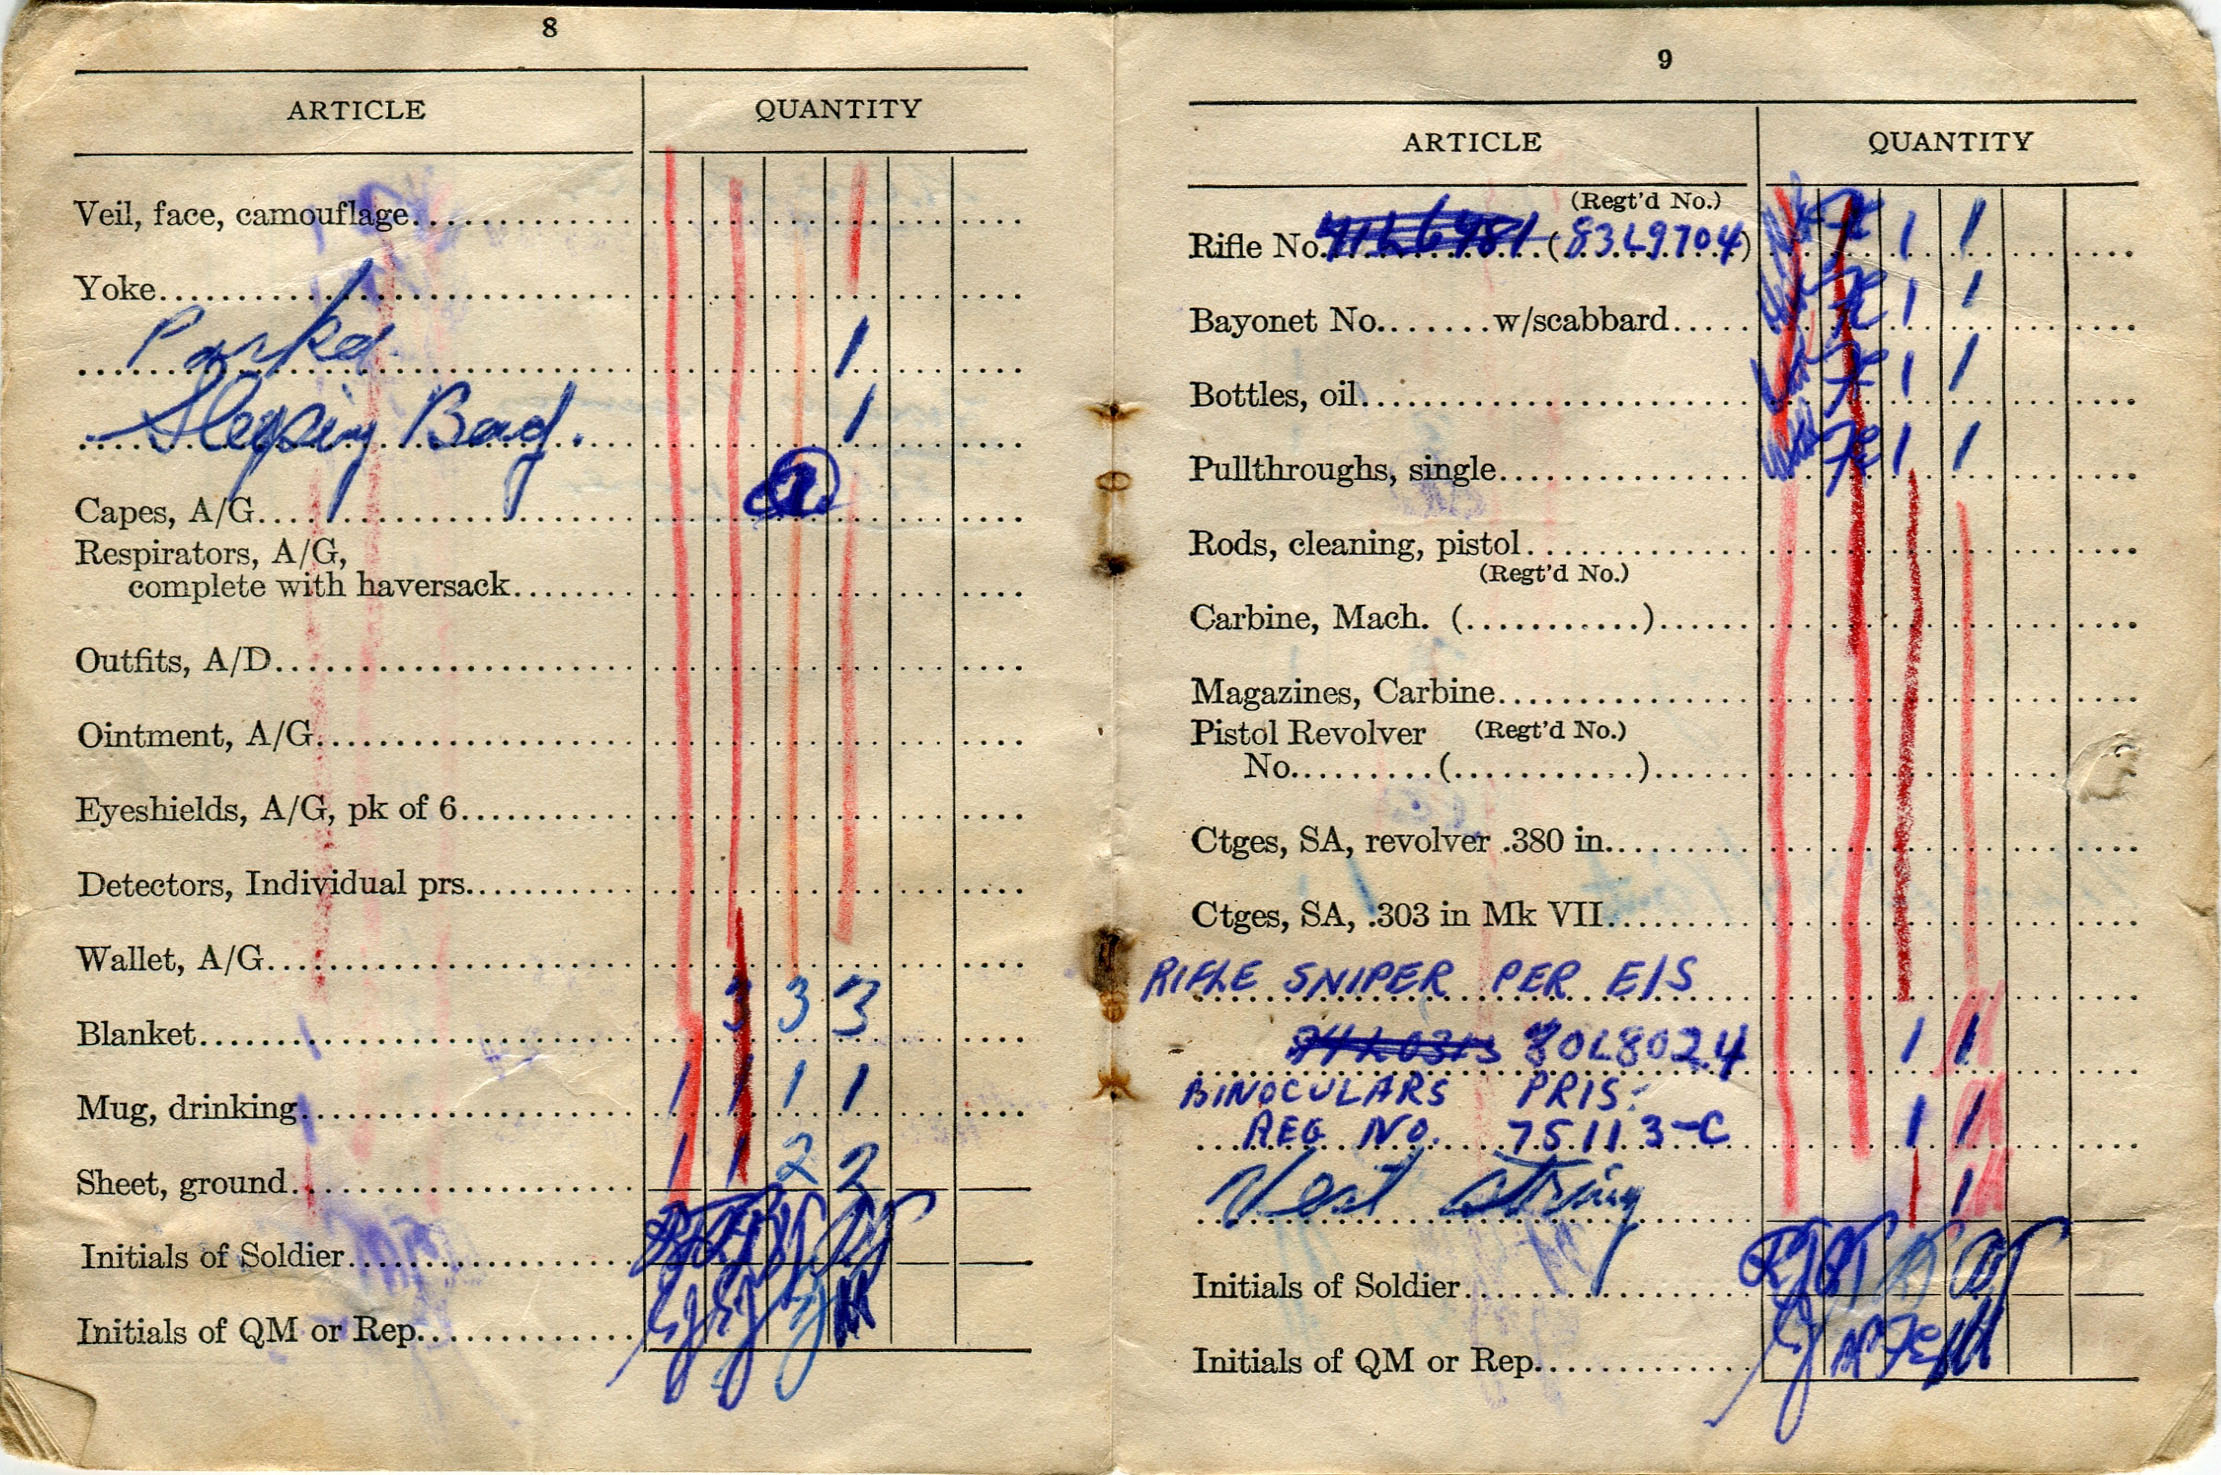 8
ARTICLE QUANTITY
Veil, face, camouflage
Yoke
Parka 1
Sleeping Bag. 1
Capes, A/G
Respirators, A/G,
complete with haversack
Outfits, A/D
Ointment, A/G
Eyeshields, A/G, pk of 6
Detectors, Individual prs.
Wallet, A/G
Blanket 3 3 3
Mug, drinking 1 1 1 1
Sheet, ground 1 1 2 2
Initials of Soldier
Initials of QM or Rep.
9
ARTICLE QUANTITY
(Regt'd No.)
Rifle No. (83L9704) 1 1
Bayonet No.......w/scabbard 1 1
Bottles, oil 1 1
Pullthroughs, single 1 1
Rods, cleaning, pistol
(Regt'd No.)
Carbine, Mach. (...........)
Magazines, Carbine
Pistol Revolver (Regt'd No.)
No.........(...........)
Ctges, SA, revolver .380 in.
Ctges, SA, .303 in Mk VII
RIFLE SNIPER PER E/S
80L8024 1 1
BINOCULARS PRIS.
REG NO. 75113-C 1 1
Vest string 1 1
Initials of Soldier
Initials of QM or Rep.